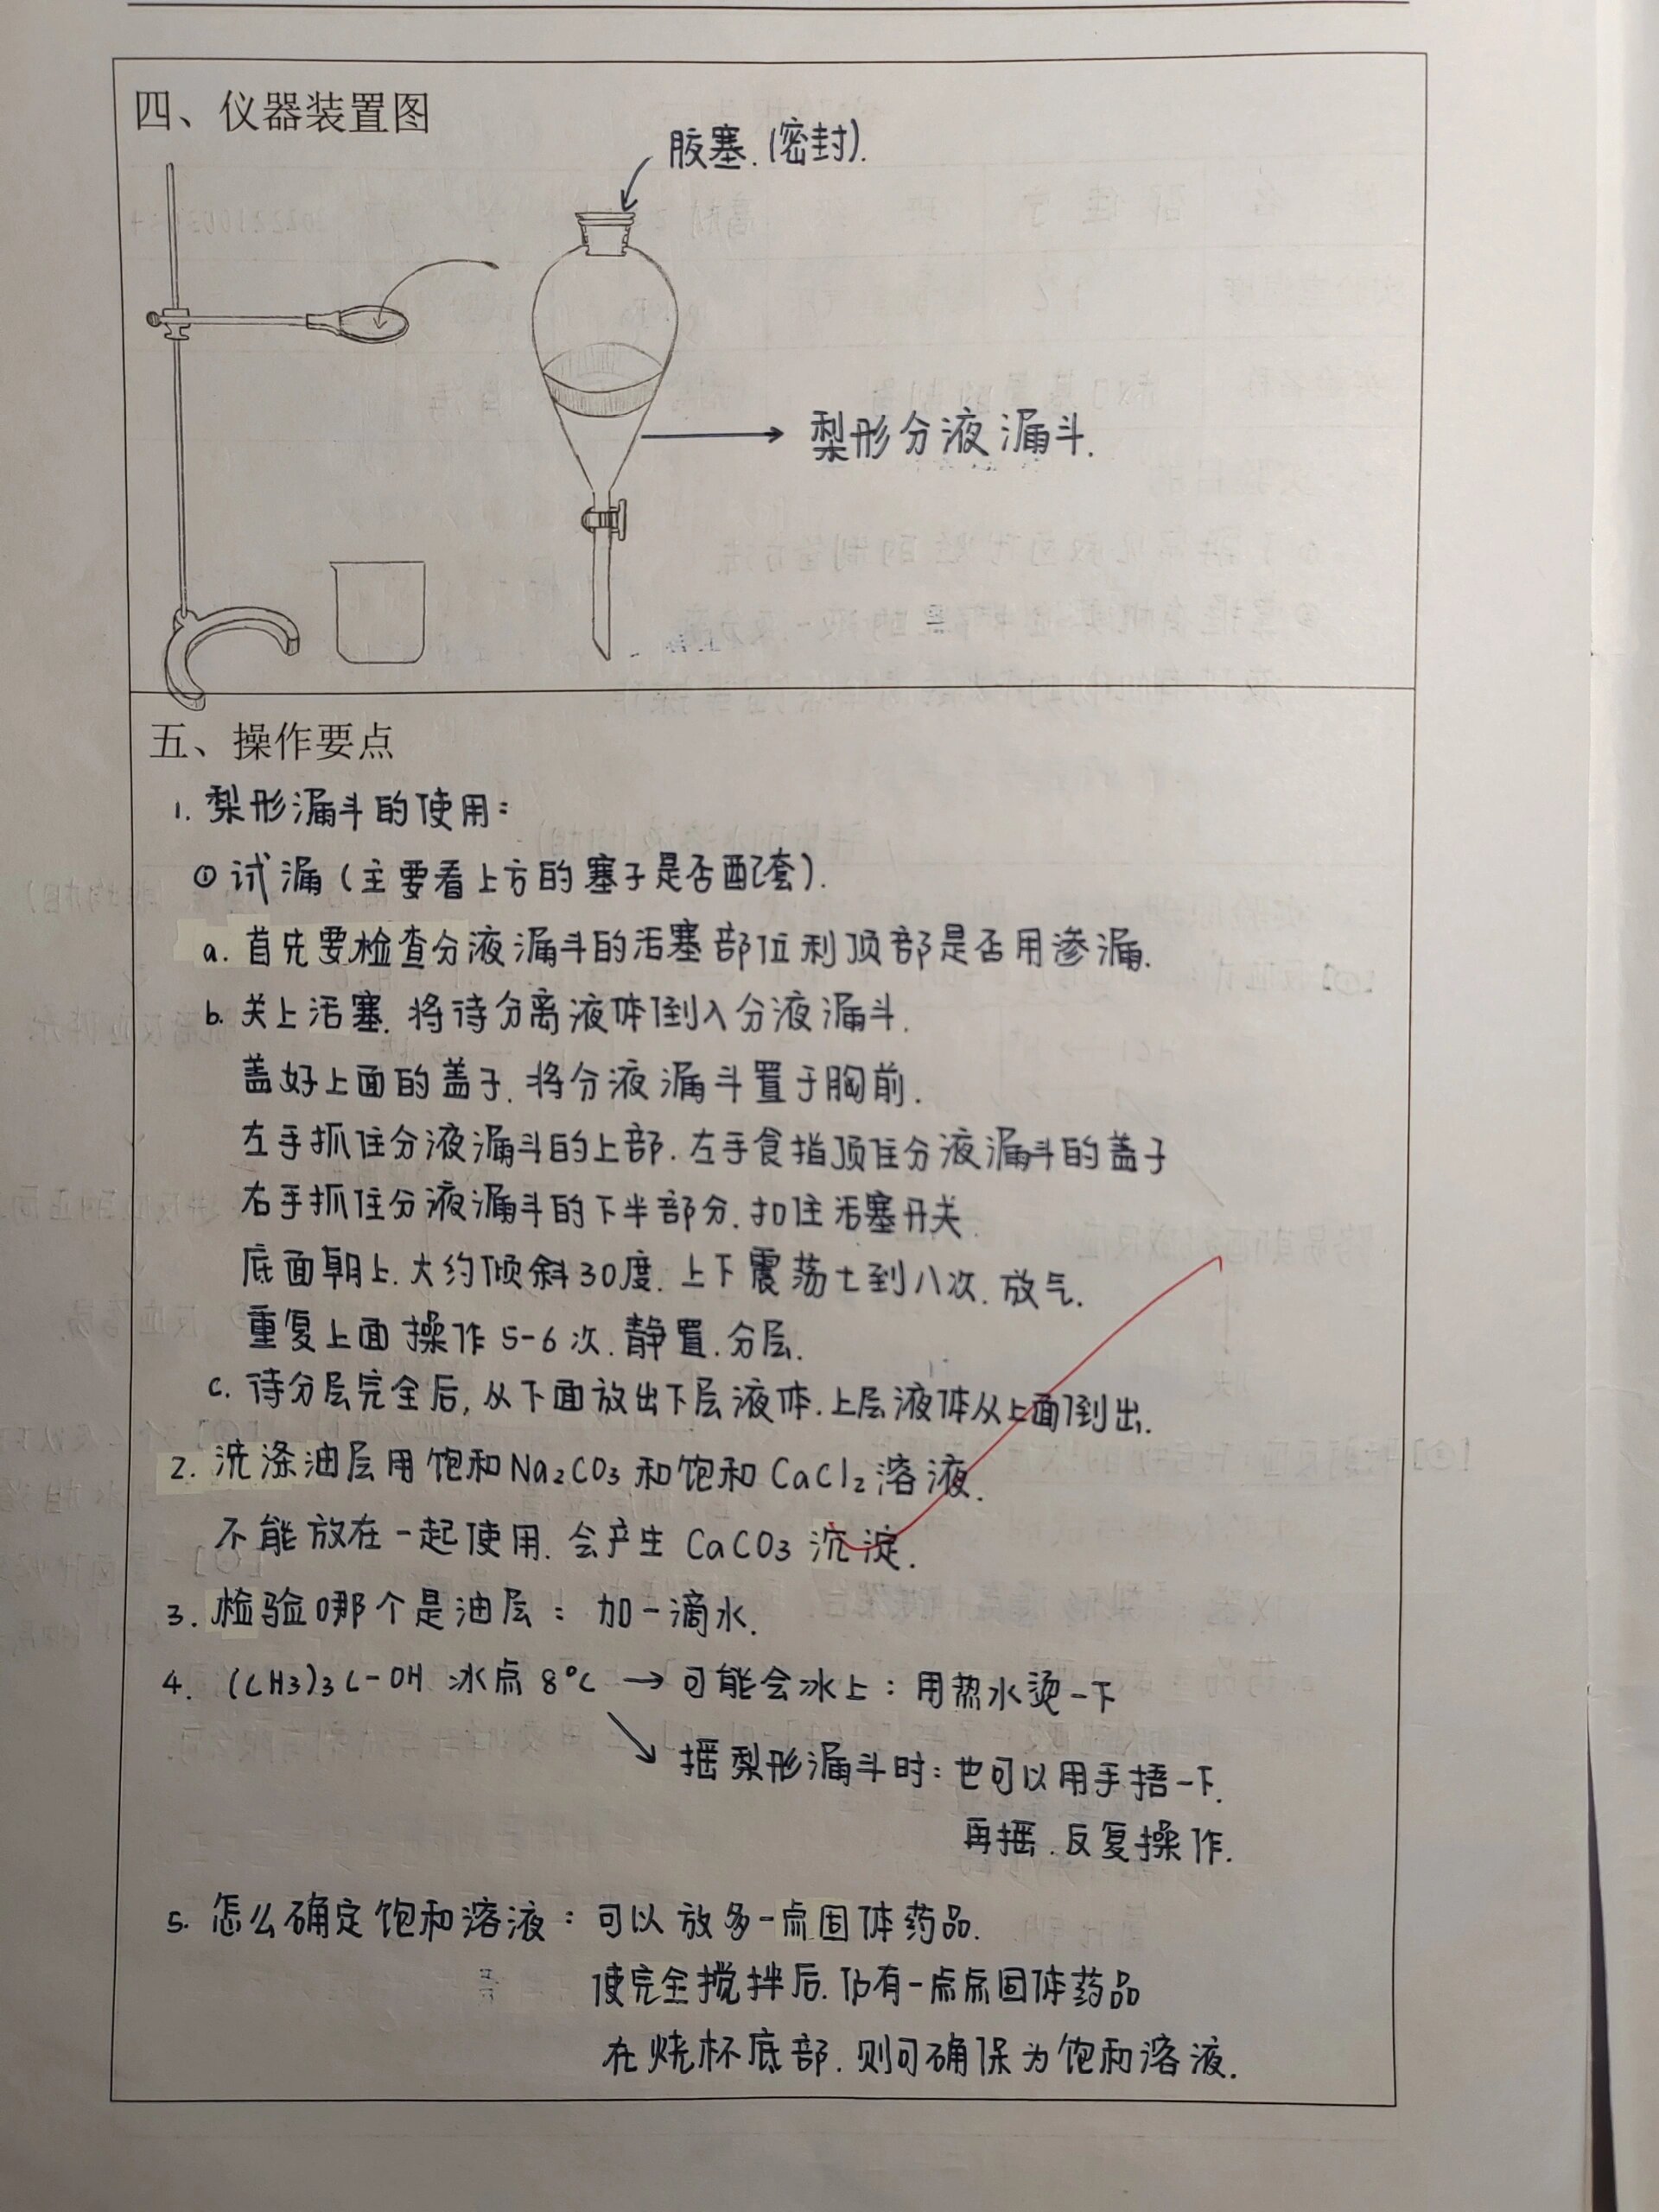 四、仪器装置图
胶塞.(密封).
梨形分液漏斗.
五、操作要点
1. 梨形漏斗的使用:
① 试漏(主要看上方的塞子是否配套).
a. 首先要检查分液漏斗的活塞部位和顶部是否用渗漏.
b. 关上活塞. 将待分离液体倒入分液漏斗.
盖好上面的盖子. 将分液漏斗置于胸前.
左手抓住分液漏斗的上部. 左手食指顶住分液漏斗的盖子
右手抓住分液漏斗的下半部分. 扣住活塞开关
底面朝上. 大约倾斜30度. 上下震荡七到八次. 放气.
重复上面操作5-6次. 静置. 分层.
c. 待分层完全后, 从下面放出下层液体. 上层液体从上面倒出.
2. 洗涤油层用饱和Na₂CO₃和饱和CaCl₂溶液.
不能放在一起使用. 会产生CaCO₃沉淀.
3. 检验哪个是油层: 加一滴水.
4. (CH₃)₃C-OH 冰点 8°C → 可能会冰上: 用热水烫一下
摇梨形漏斗时: 也可以用手捂一下.
再摇. 反复操作.
5. 怎么确定饱和溶液: 可以放多一点固体药品.
使完全搅拌后. 仍有一点点固体药品
在烧杯底部. 则可确保为饱和溶液.